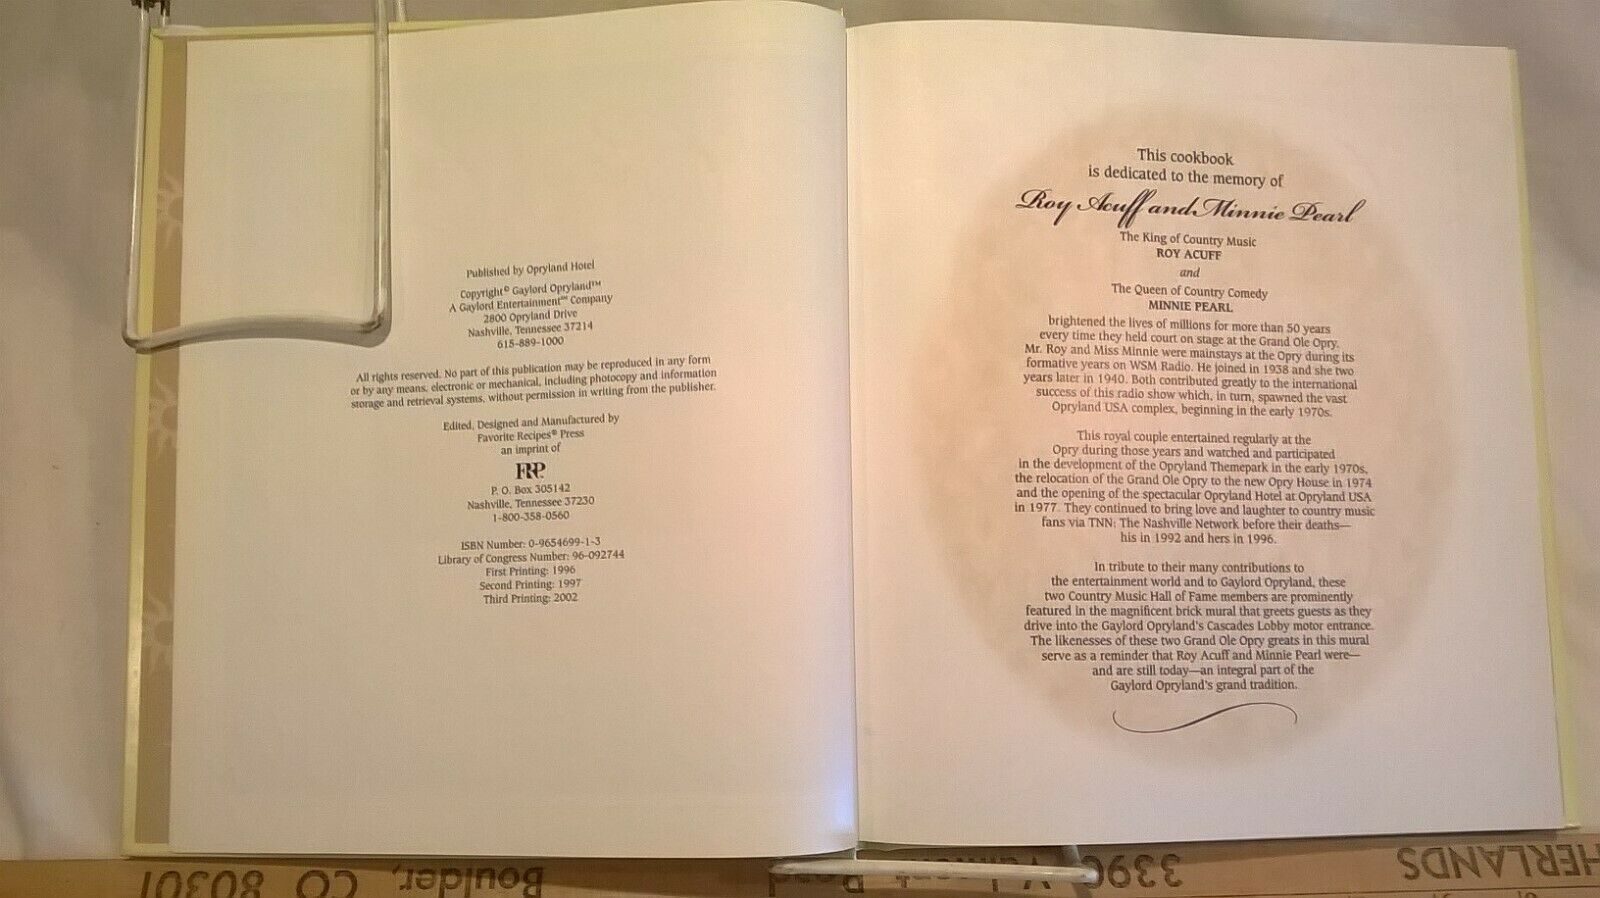 Published by Opryland Hotel
Copyright© Gaylord Opryland™
A Gaylord Entertainment℠ Company
2800 Opryland Drive
Nashville, Tennessee 37214
615-889-1000
All rights reserved. No part of this publication may be reproduced in any form
or by any means, electronic or mechanical, including photocopy and information
storage and retrieval systems, without permission in writing from the publisher.
Edited, Designed and Manufactured by
Favorite Recipes® Press
an imprint of
FRP
P. O. Box 305142
Nashville, Tennessee 37230
1-800-358-0560
ISBN Number: 0-9654699-1-3
Library of Congress Number: 96-092744
First Printing: 1996
Second Printing: 1997
Third Printing: 2002
This cookbook
is dedicated to the memory of
Roy Acuff and Minnie Pearl
The King of Country Music
ROY ACUFF
and
The Queen of Country Comedy
MINNIE PEARL
brightened the lives of millions for more than 50 years
every time they held court on stage at the Grand Ole Opry.
Mr. Roy and Miss Minnie were mainstays at the Opry during its
formative years on WSM Radio. He joined in 1938 and she two
years later in 1940. Both contributed greatly to the international
success of this radio show which, in turn, spawned the vast
Opryland USA complex, beginning in the early 1970s.
This royal couple entertained regularly at the
Opry during those years and watched and participated
in the development of the Opryland Themepark in the early 1970s,
the relocation of the Grand Ole Opry to the new Opry House in 1974
and the opening of the spectacular Opryland Hotel at Opryland USA
in 1977. They continued to bring love and laughter to country music
fans via TNN: The Nashville Network before their deaths—
his in 1992 and hers in 1996.
In tribute to their many contributions to
the entertainment world and to Gaylord Opryland, these
two Country Music Hall of Fame members are prominently
featured in the magnificent brick mural that greets guests as they
drive into the Gaylord Opryland's Cascades Lobby motor entrance.
The likenesses of these two Grand Ole Opry greats in this mural
serve as a reminder that Roy Acuff and Minnie Pearl were—
and are still today—an integral part of the
Gaylord Opryland's grand tradition.
Boulder, CO 80301
Road
HERLANDS